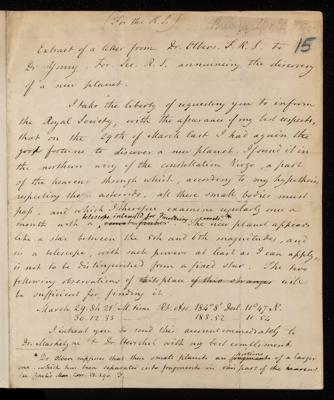 (For the R.S.)
15
Extract of a letter from Dr. Olbers. F.R.S. to
Dr Young. For. Sec. R.S. announcing the discovery
of a new planet.
I take the liberty of requesting you to inform
the Royal Society, with the assurance of my best respects,
that on the 29th of March last I had again the
good fortune to discover a new planet. I found it in
the northern wing of the constellation Virgo, a part
of the heavens through which, according to my hypothesis
respecting the asteroids, all these small bodies must
pass, and which I therefore examine regularly once a
telescope intended for discovering comets
month with a The new planet appears
like a star between the 5th and 6th magnitudes, and
in a telescope, with such powers at least as I can apply,
is not to be distinguished from a fixed star. The two
following observations of will
be sufficient for finding it.
March 29. 8h 21' M. time Rt. Asc. 184° 8' Decl. 11° 47' N.
30. 12. 33 183. 52 11. 54
I intreat you to send this account immediately to
Dr Maskelyne & Dr Herschel with my best compliments.
* Dr. Olbers supposes that these small planets are portions of a larger
one which has been separated into fragments in this part of the heavens